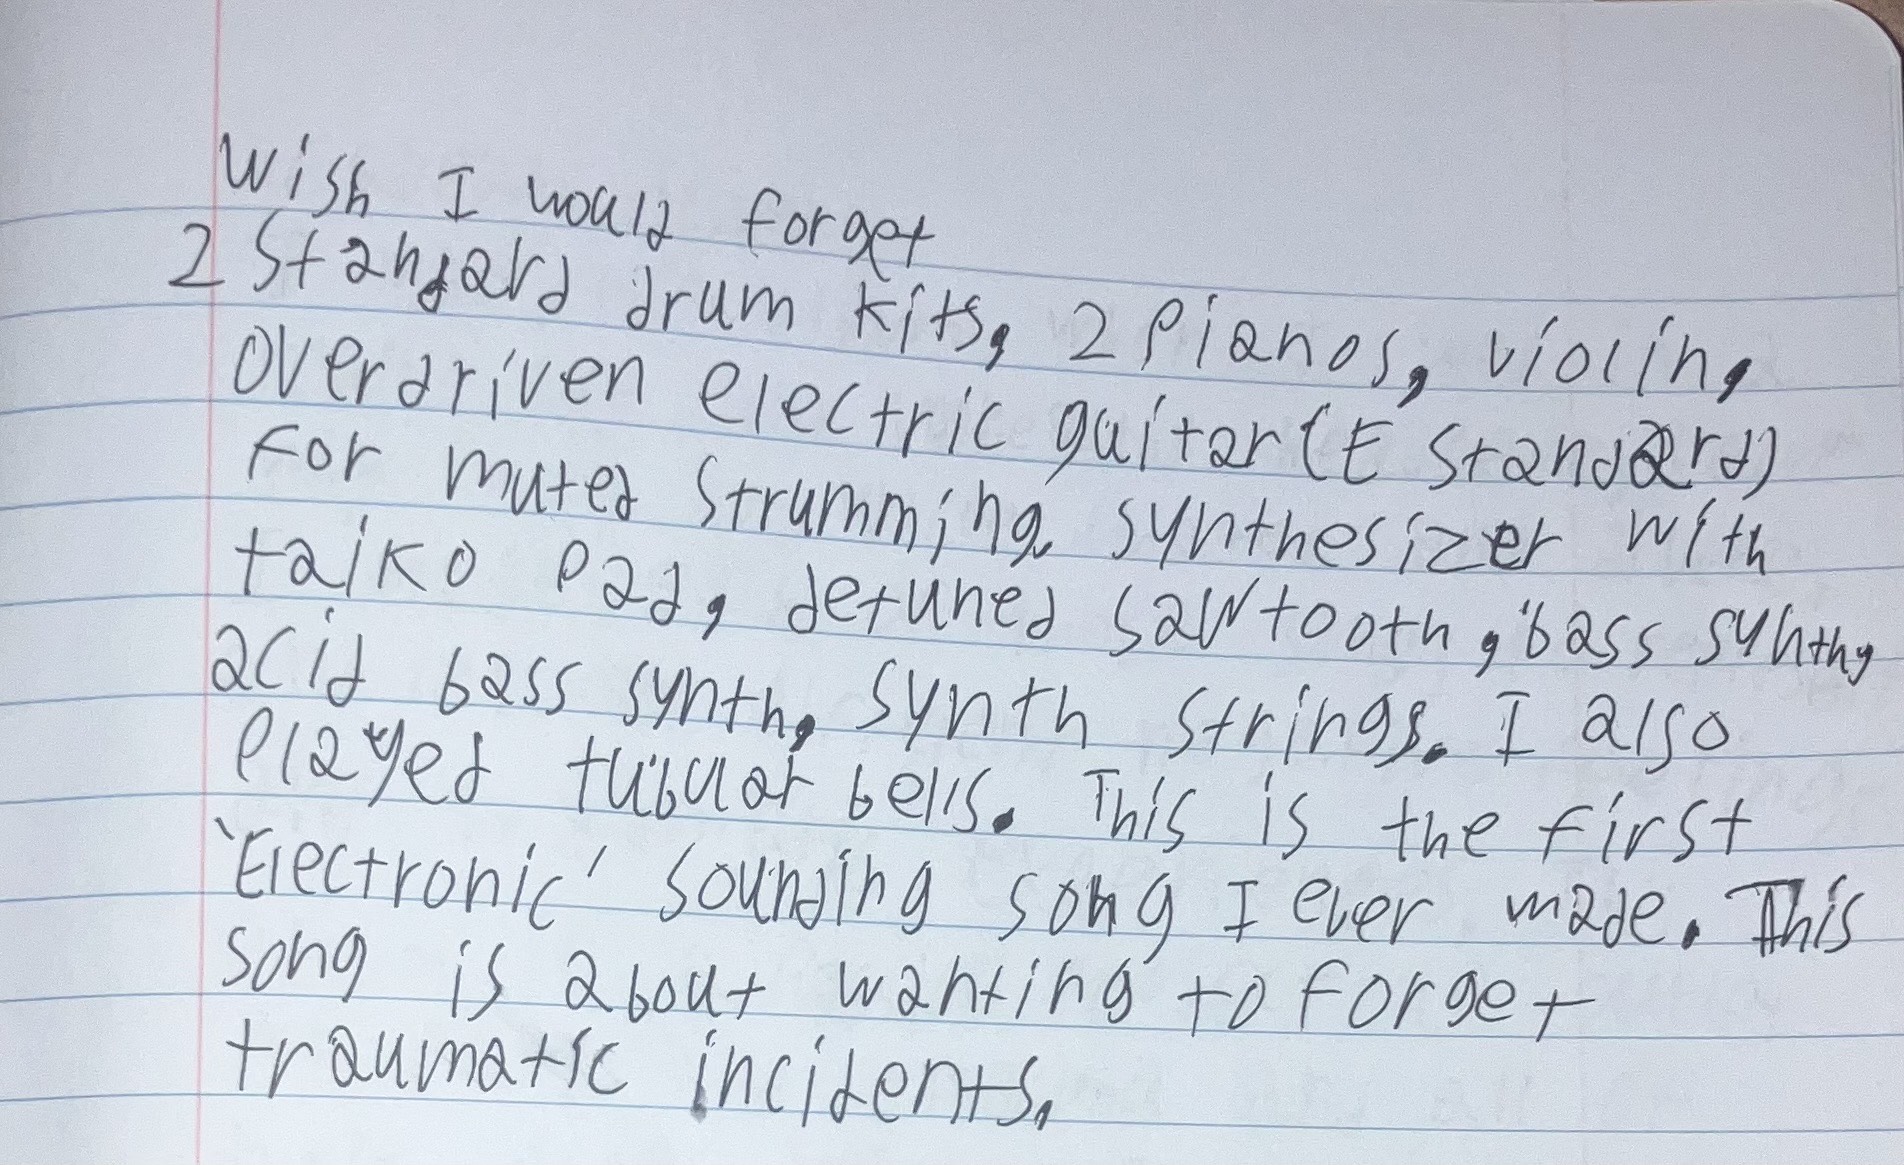 Wish I would forget
2 Standard drum kits, 2 Pianos, violin,
overdriven electric guitar (E Standard)
For muted strumming. synthesizer with
taiko pad, detuned sawtooth, bass synth,
acid bass synth, synth strings. I also
Played tubular bells. This is the first
'Electronic' sounding song I ever made. This
song is about wanting to forget
traumatic incidents.